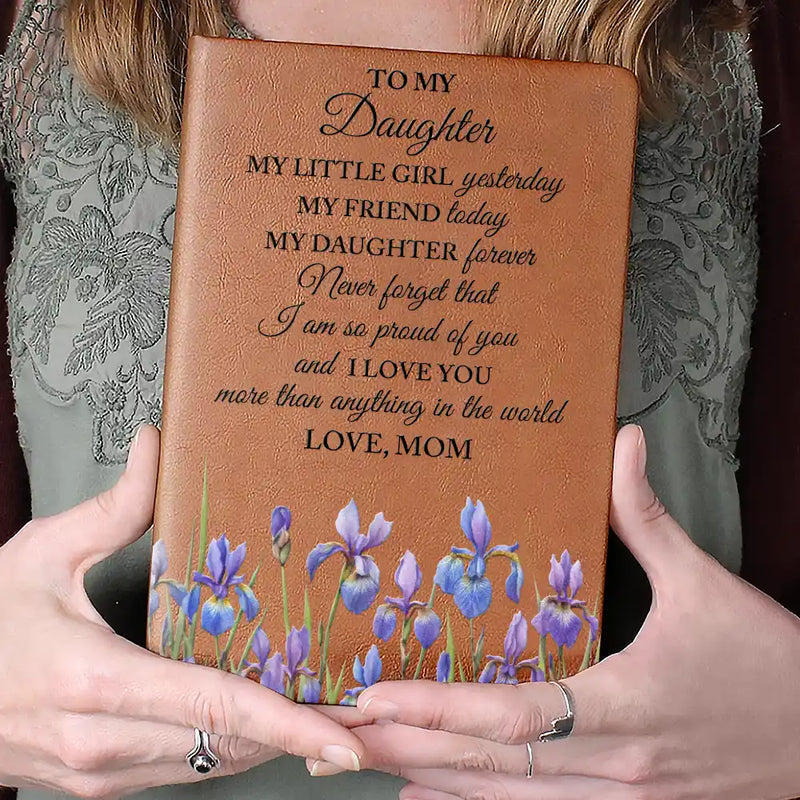 TO MY
Daughter
MY LITTLE GIRL yesterday
MY FRIEND today
MY DAUGHTER forever
Never forget that
I am so proud of you
and I LOVE YOU
more than anything in the world
LOVE, MOM